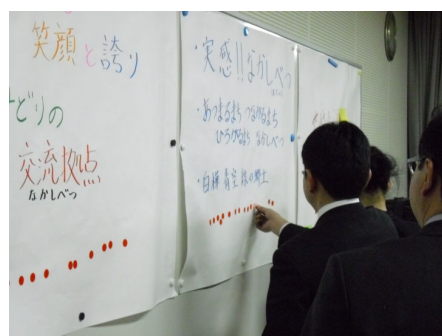 笑顔と誇り
みどりの
交流拠点
なかしべつ
・実感!!なかしべつ
・あつまるまち つながるまち
ひろがるまち なかしべつ
・白樺 青空 緑の郷土